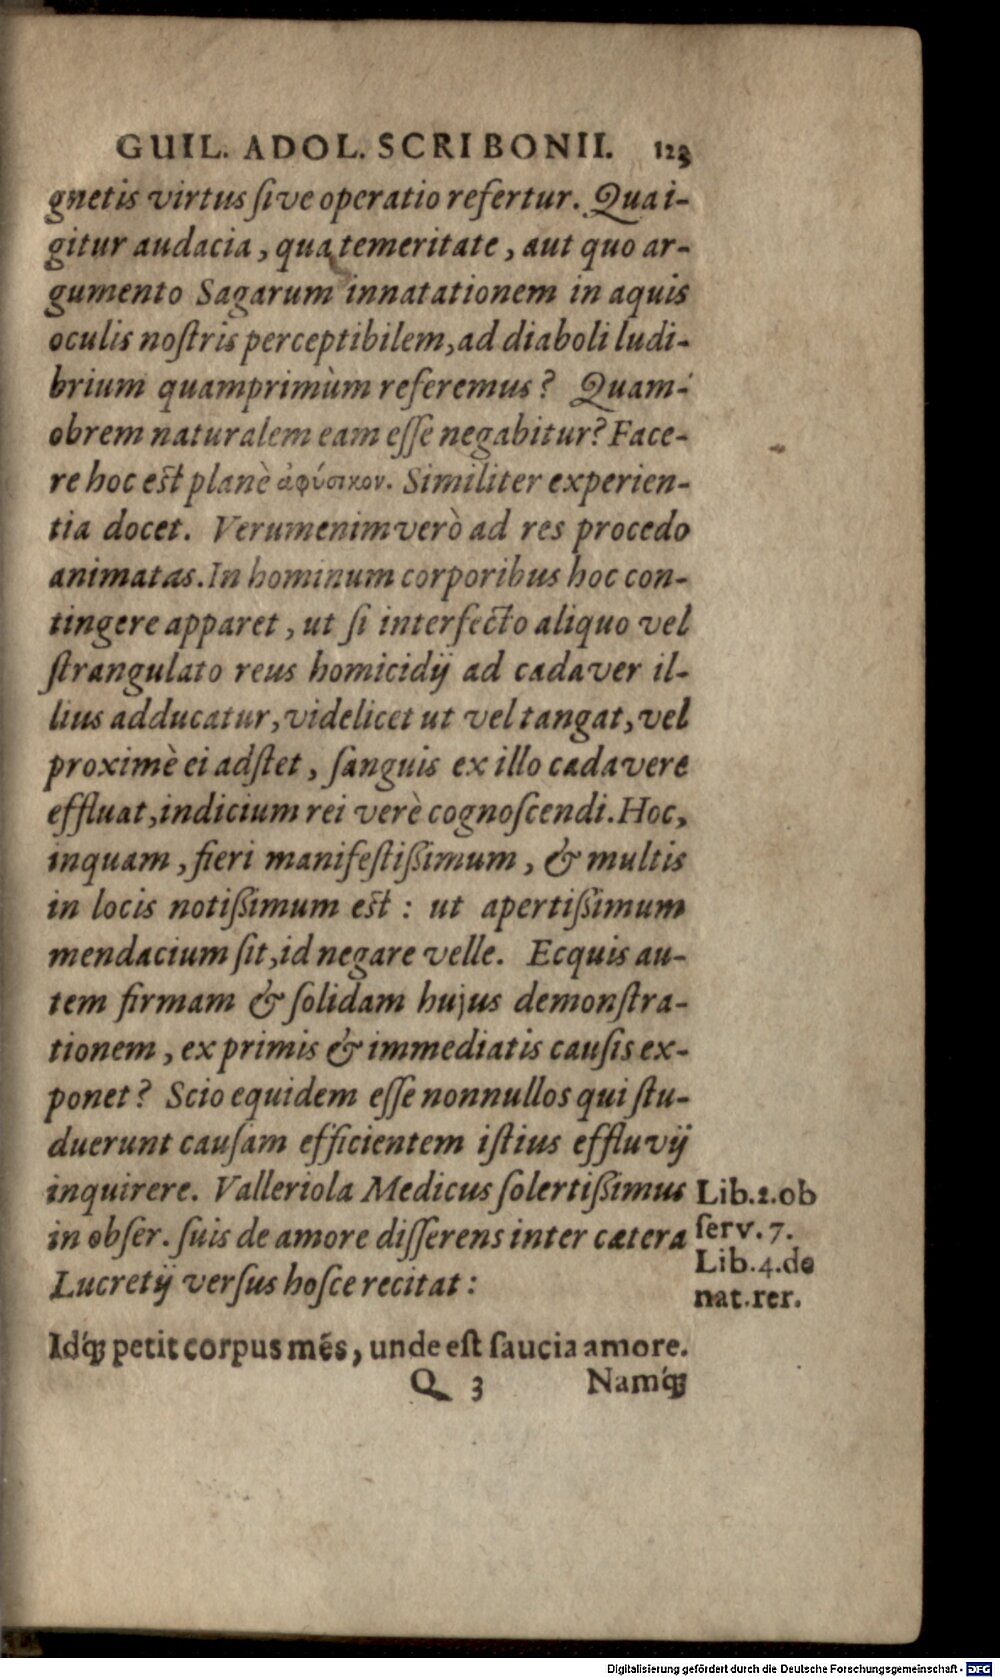 GUIL. ADOL. SCRIBONII. 123
gnetis virtus ſive operatio refertur. Qua i-
gitur audacia, qua temeritate, aut quo ar-
gumento Sagarum innatationem in aquis
oculis noſtris perceptibilem, ad diaboli ludi-
brium quamprimùm referemus? Quam-
obrem naturalem eam eſſe negabitur? Face-
re hoc eſt planè ἀφύσικον. Similiter experien-
tia docet. Verumenimverò ad res procedo
animatas. In hominum corporibus hoc con-
tingere apparet, ut ſi interfecto aliquo vel
ſtrangulato reus homicidij ad cadaver il-
lius adducatur, videlicet ut vel tangat, vel
proximè ei adſtet, ſanguis ex illo cadavere
effluat, indicium rei verè cognoſcendi. Hoc,
inquam, fieri manifeſtißimum, & multis
in locis notißimum eſt: ut apertißimum
mendacium ſit, id negare velle. Ecquis au-
tem firmam & ſolidam hujus demonſtra-
tionem, ex primis & immediatis cauſis ex-
ponet? Scio equidem eſſe nonnullos qui ſtu-
duerunt cauſam efficientem iſtius effluvij
inquirere. Valleriola Medicus ſolertißimus
in obſer. ſuis de amore diſſerens inter cætera
Lucretij verſus hoſce recitat:
Lib.2.ob
ſerv. 7.
Lib.4.de
nat.rer.
Idq́; petit corpus mẽs, unde eſt ſaucia amore.
Q 3 Namq́;
Digitalisierung gefördert durch die Deutsche Forschungsgemeinschaft - DFG